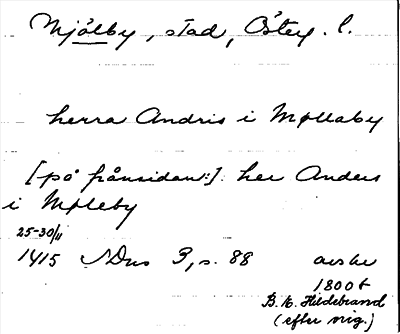 Mjölby, stad, Östg. l.
herra Andris i Møllaby
[på frånsidan:] her Anders
i Møleby
25-30/11
1415 SDns 3, s. 88 avskr
1800 t
B. E. Hildebrand
(efter orig.)